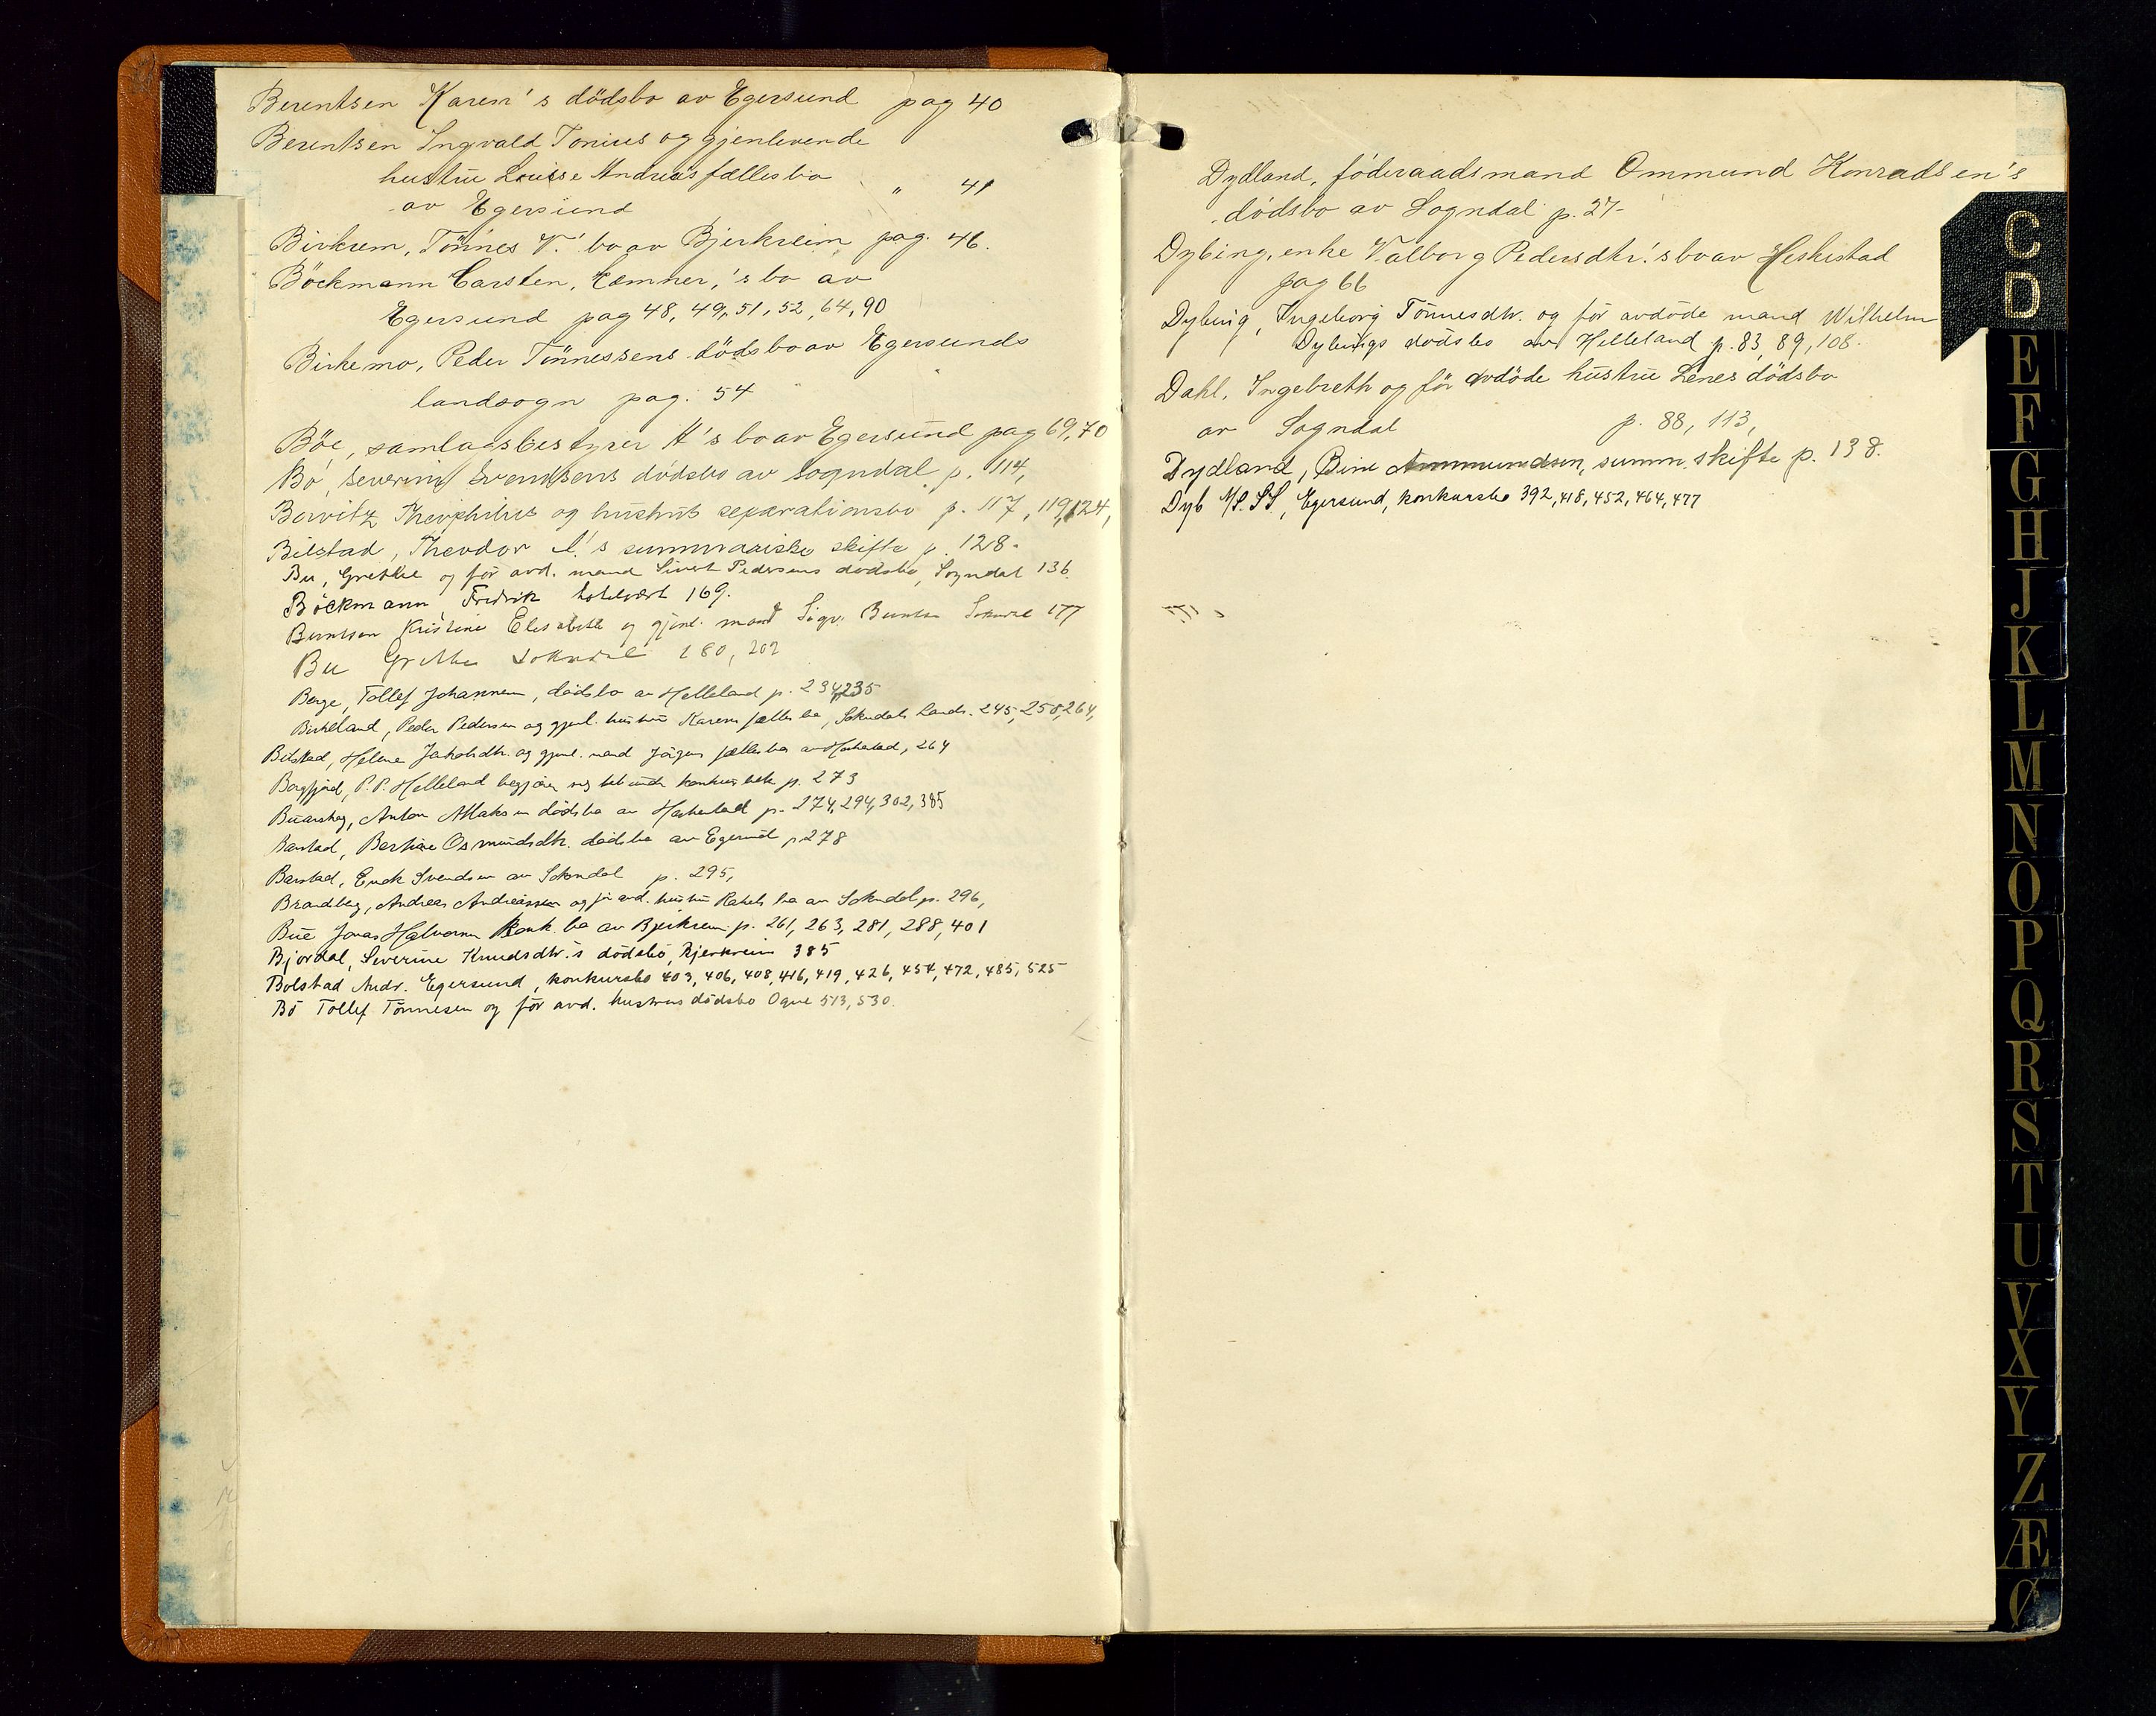 Berentsen Karen's dödsbo av Egersund pag 40
Berentsen Ingvald Tonius og gjenlevende
hustru Louise Andreas fællesbo " 41
av Egersund
Birkrem, Tönnes V.' bo av Bjerkreim pag. 46.
Böckmann Carsten, Kæmner,'s bo av
Egersund pag 48, 49, 51, 52, 64, 90
Birkemo, Peder Tönnessens dödsbo av Egersunds
landsogn pag. 54
Böe, samlagsbestyrer A's bo av Egersund pag 69, 70
Bö, Severin Svendsens dödsbo av Sogndal p. 114,
Bervitz Theophilus og hustrus separationsbo p. 117, 119, 124,
Bilstad, Theodor A.'s summariske skifte p. 128.
Bu, Grethe og för avd. mand Sivert Pedersens dödsbo, Sogndal 136.
Böckmann Fredrik hotelvært 169.
Berntsen Kristine Elisabeth og gjenl. mand Sigv. Berntsen Sokndal 177
Bu Grethe Sokndal 180, 202
Berge, Tollef Johannesen, dödsbo av Helleland p. 234, 235
Birkeland, Peder Pedersen og gjenl. hustru Karens fælles bo, Sokndals Lands. 245, 258, 264,
Bilstad, Helene Jakobsdtr. og gjenl. mand Jörgens fælles bo av Heskestad, 264
Bergfjord, P. P. Helleland begjærer sig tat under konkurs beh. p. 273
Buarskog, Anton Aslaksen dödsbo av Heskestad p. 274, 294, 302, 385
Barstad, Bertine Osmundsdtr. dödsbo av Egersund p 278
Barstad, Enok Svendsen av Sokndal p. 295,
Brandberg, Andreas Andreassen og för avd. hustru Rakels bo av Sokndal p. 296,
Bue Jonas Halvorsen Konk. bo av Bjerkrem p. 261, 263, 281, 288, 401
Bjordal, Severine Knudsdtr.'s dödsbo, Bjerkreim 385
Bolstad Andr. Egersund, konkursbo 403, 406, 408, 416, 419, 426, 454, 472, 485, 525
Bö Tollef Tönnesen og för avd. hustrus dödsbo Ogne 513, 530.
Dydland, föderaadsmand Ommund Konradsen's
dödsbo av Sogndal p. 27-
Dybing, enke Valborg Pedersdtr.'s bo av Heskestad
pag 66
Dybing, Ingeborg Tönnesdtr. og för avdöde mand Wilhelm
Dybings dödsbo av Helleland p. 83, 89, 108.
Dahl, Ingebreth og för avdöde hustru Lenes dödsbo
av Sogndal p. 88, 113,
Dydland, Bine Ammundsen, summ. skifte p. 138.
Dyb M/S. SS, Egersund, konkursbo 392, 418, 452, 464, 477
C
D
E
F
G
H
J
K
L
M
N
O
P
Q
R
S
T
U
V
X
Y
Z
Æ
Ø